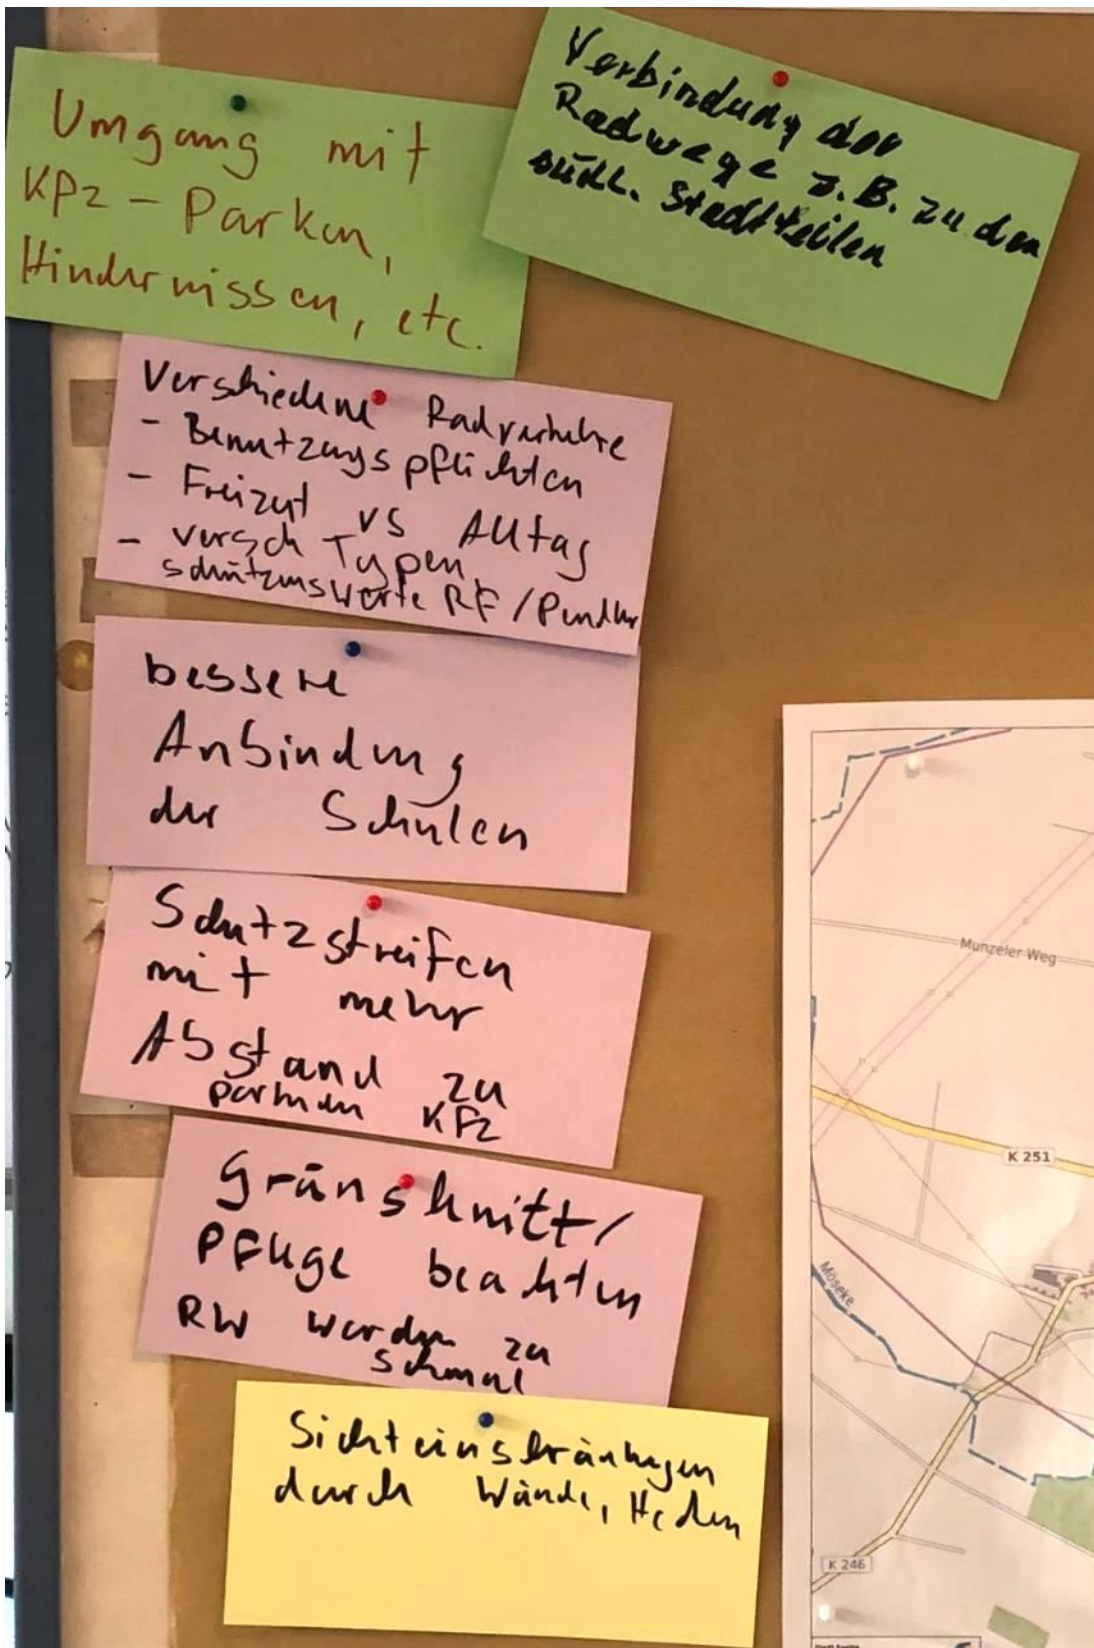 Umgang mit
KPz - Parken,
Hindernissen, etc.
Verbindung der
Radwege z.B. zu den
südl. Stadtteilen
Verschiedene Radverkehre
- Benutzungspflichten
- Freizeit vs Alltag
- versch Typen
schützenswerte RF / Pendler
bessere
Anbindung
der Schulen
Schutzstreifen
mit mehr
Abstand zu
parkenden KFz
Grünschnitt/
Pflege beachten
RW werden zu
schmal
Sichteinschränkungen
durch Wände, Hecken
Munzeler Weg
K 251
Möseke
K 246